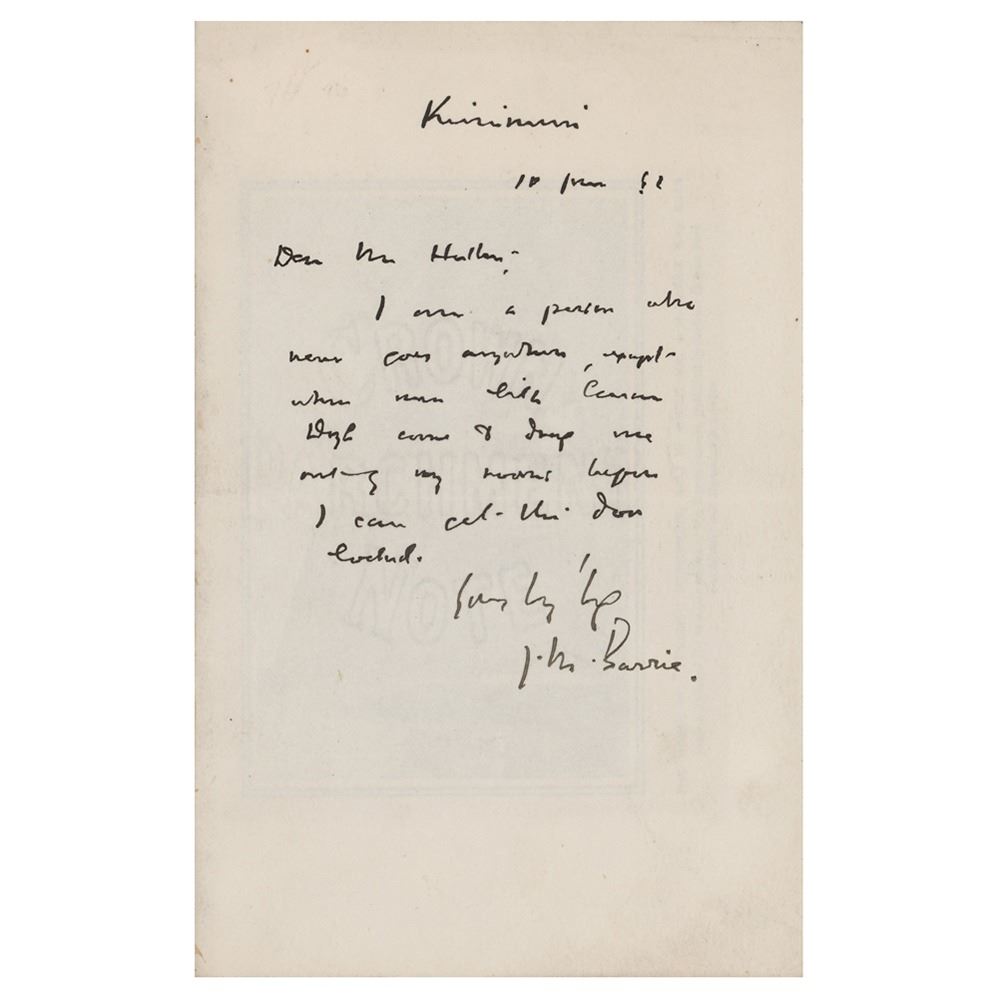 Kirriemuir
10
Dear Mr
I am a person who
never goes anywhere, except
when men like Conan
Doyle come & drag me
out of my rooms before
I can get the door
locked.
Yours
J. M. Barrie.